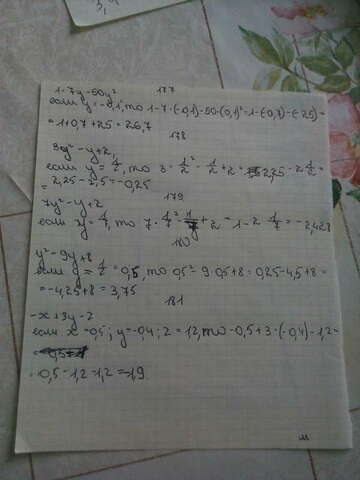 1-7y-50y² 177
если y=-0,1, то 1-7·(-0,1)-50·(0,1)²=1-(-0,7)-(-25)=
=1+0,7+25=26,7
178
3y²-y+2,
если y=1/2, то 3·1/2²-1/2+2= 2,25-2 1/2=
=2,25-2,5=-0,25
179
7y²-y+2
если y=1/7, то 7·1/7² +2=1-2 1/7=-2,428
180
y²-9y+8
если y=1/2=0,5, то 0,5²-9·0,5+8=0,25-4,5+8=
=-4,25+8=3,75
181
-x+3y-2
если x=0,5; y=-0,4; 2=12, то -0,5+3·(-0,4)-1,2=
=0,5-1,2-1,2=-1,9